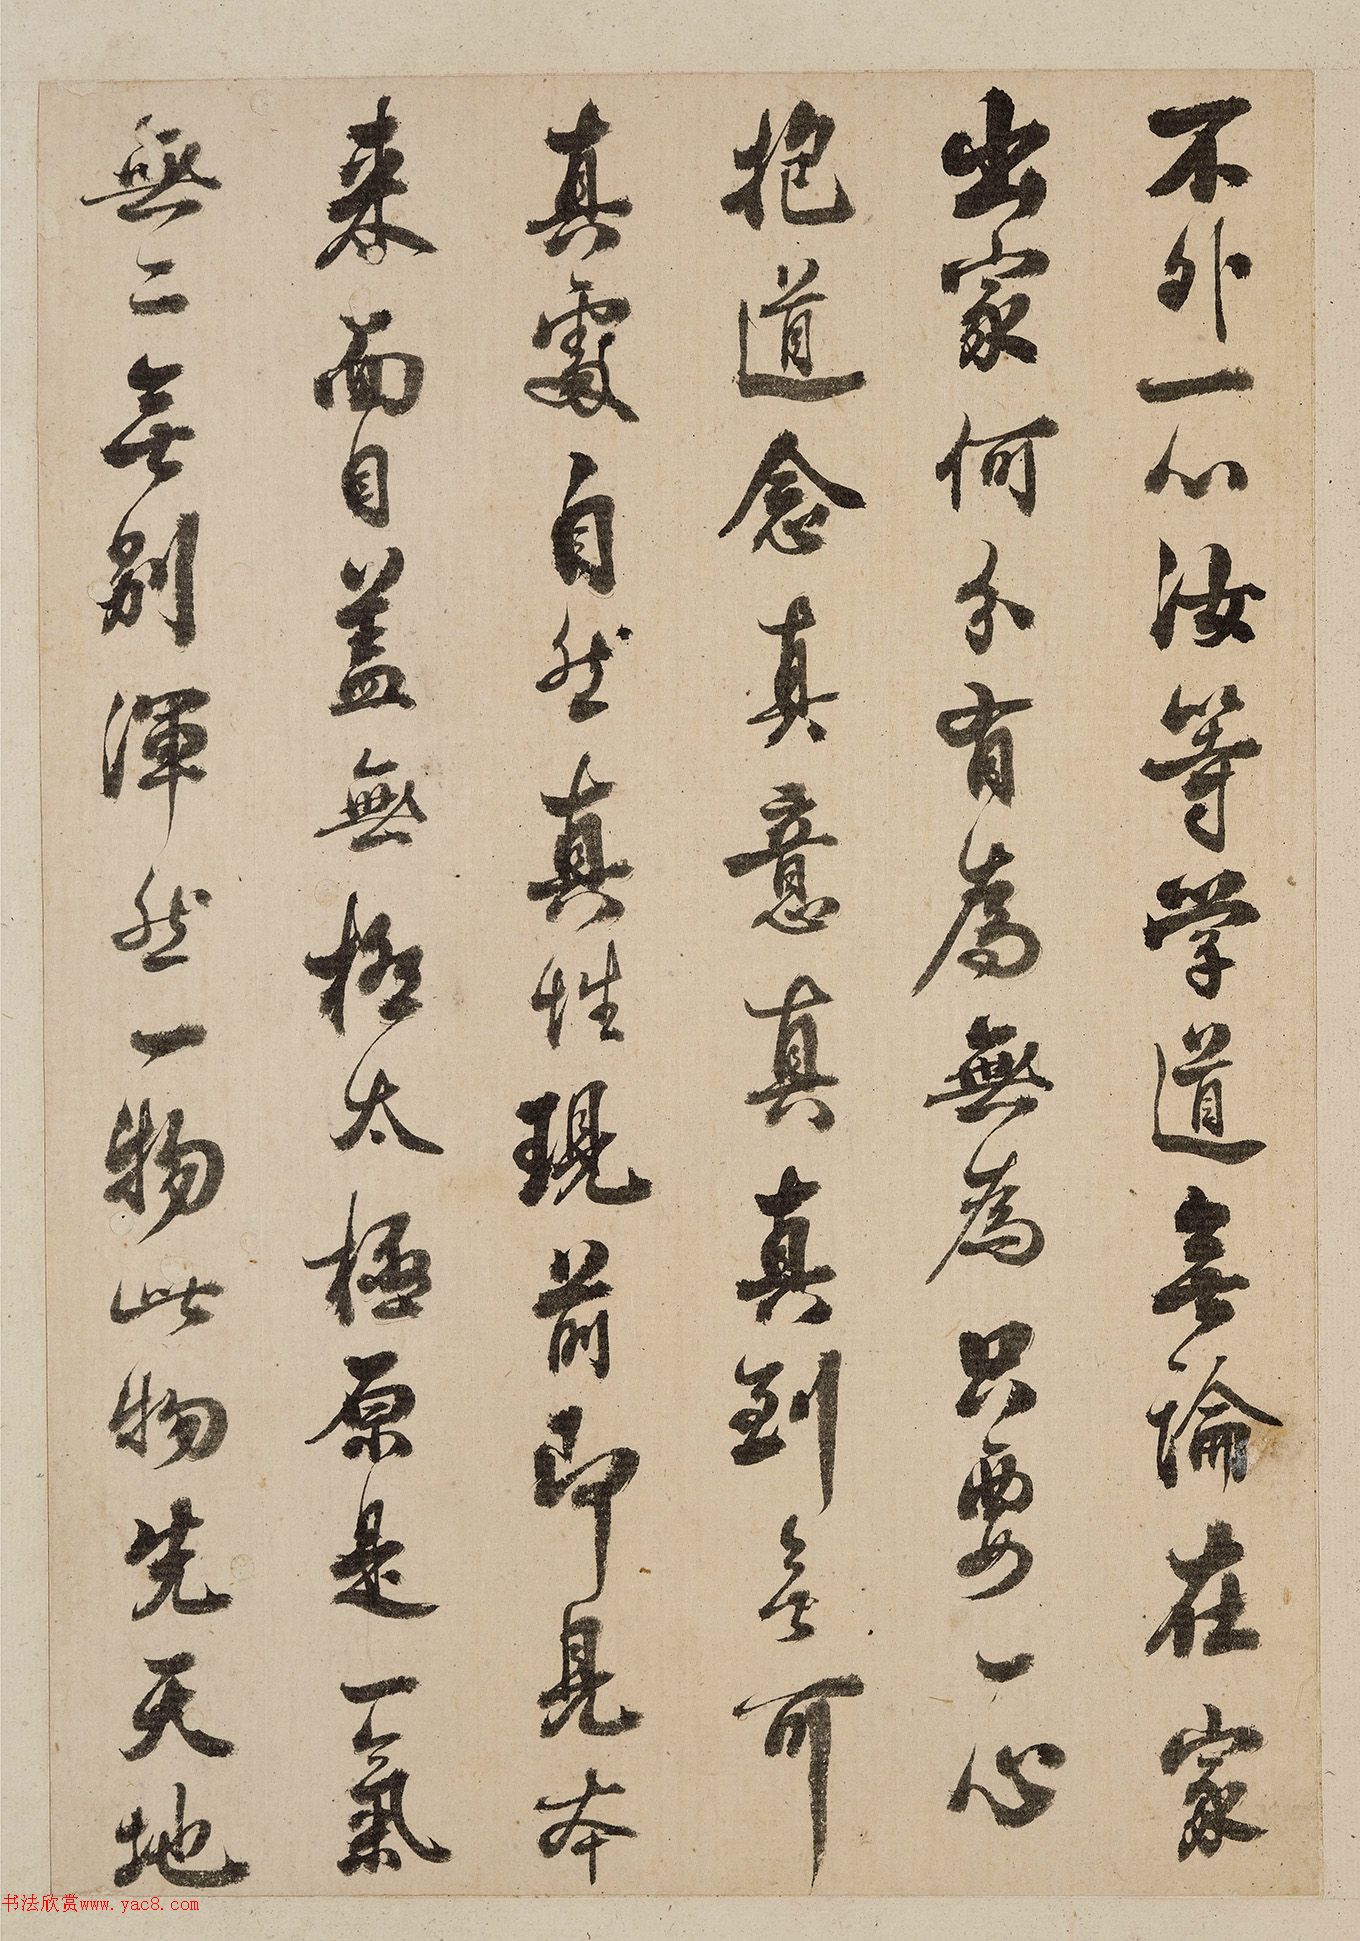 不外一心汝等学道無論在家
出家何分有為無為只要一心
抱道念真意真真到無可
真處自然真性現前即見本
来面目蓋無極太極原是一氣
無二無别渾然一物此物先天地
书法欣赏www.yac8.com